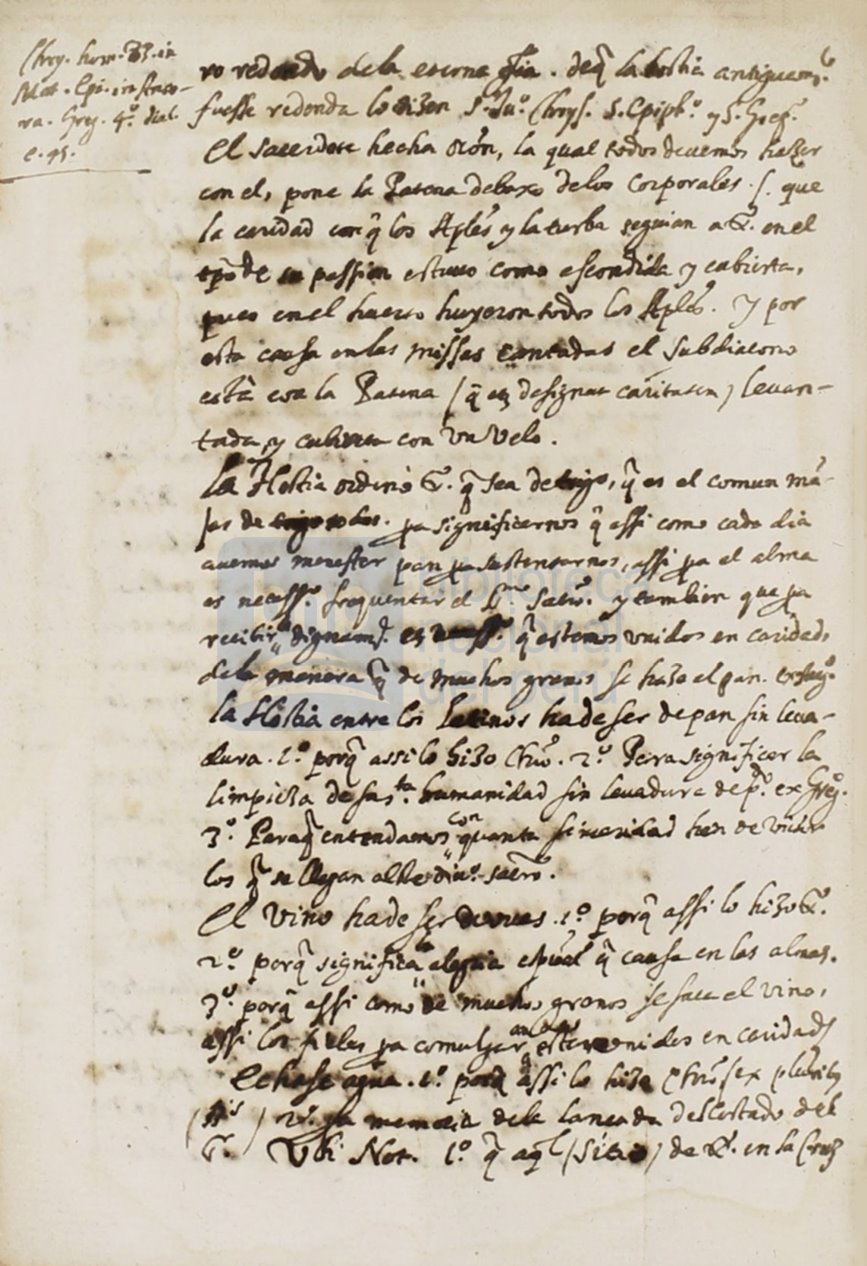 Chrys. hom. 83. in
Mat. Epi. in Anco-
ra. Greg. 4.º dial.
c. 45.
ro redondo dela eterna gľia. deq̃ la hostia antiguam.te
fuesse redonda lo dizen S. Juº. Chrys. S. Epiph.º y S. Greg.º
El sacerdote hecha orón, la qual todos devemos hazer
con el, pone la Patena debaxo delos corporales. S. que
la caridad con q̃ los Aples y la turba seguian a X. en el
tpõ de su passion estuvo como escondida y cubierta,
pues en el huerto huyeron todos los Aples. Y por
esta causa en las missas cantadas el subdiacono
està con la Patena (q̃ designat caritatem) levan-
tada, y cubierta con un velo.
La Hostia ordenò X. q̃ sea de trigo, q̃ es el comun mã-
jar de todos. pa significarnos q̃ assi como cada dia
avemos menester pan pa sustentarnos, assi pa el alma
es necess.º frequentar el S.mo Sacrº. y tambien que pa
recibir dignam.te es necess.º q̃ estemos unidos en caridad,
dela manera q̃ de muchos granos se haze el pan.
la Hostia entre los Latinos ha de ser de pan sin leva-
dura. 1.º porq̃ assi lo hizo Chrõ. 2.º Para significar la
limpieza de su s.ta humanidad sin levadura de p.º ex Greg.
3.º Paraq̃ entendamos con quanta sinceridad han de vivir
los q̃ se llegan al divº. sacrº.
El vino ha de ser de uvas. 1.º porq̃ assi lo hizo X.
2.º porq̃ significa la alegria espũal q̃ causa en las almas.
3.º porq̃ assi como de muchos granos se saca el vino,
assi los fieles pa comulgar an de estar unidos en caridad
Echase agua. 1.º porq̃ assi lo hizo Chrõ (ex pluribus
) 2.º pa memoria dela lançada del costado del
X. Ubi Not. 1.º q̃ aql (Sitio) de X. en la Cruz
biblioteca
nacional
del perú